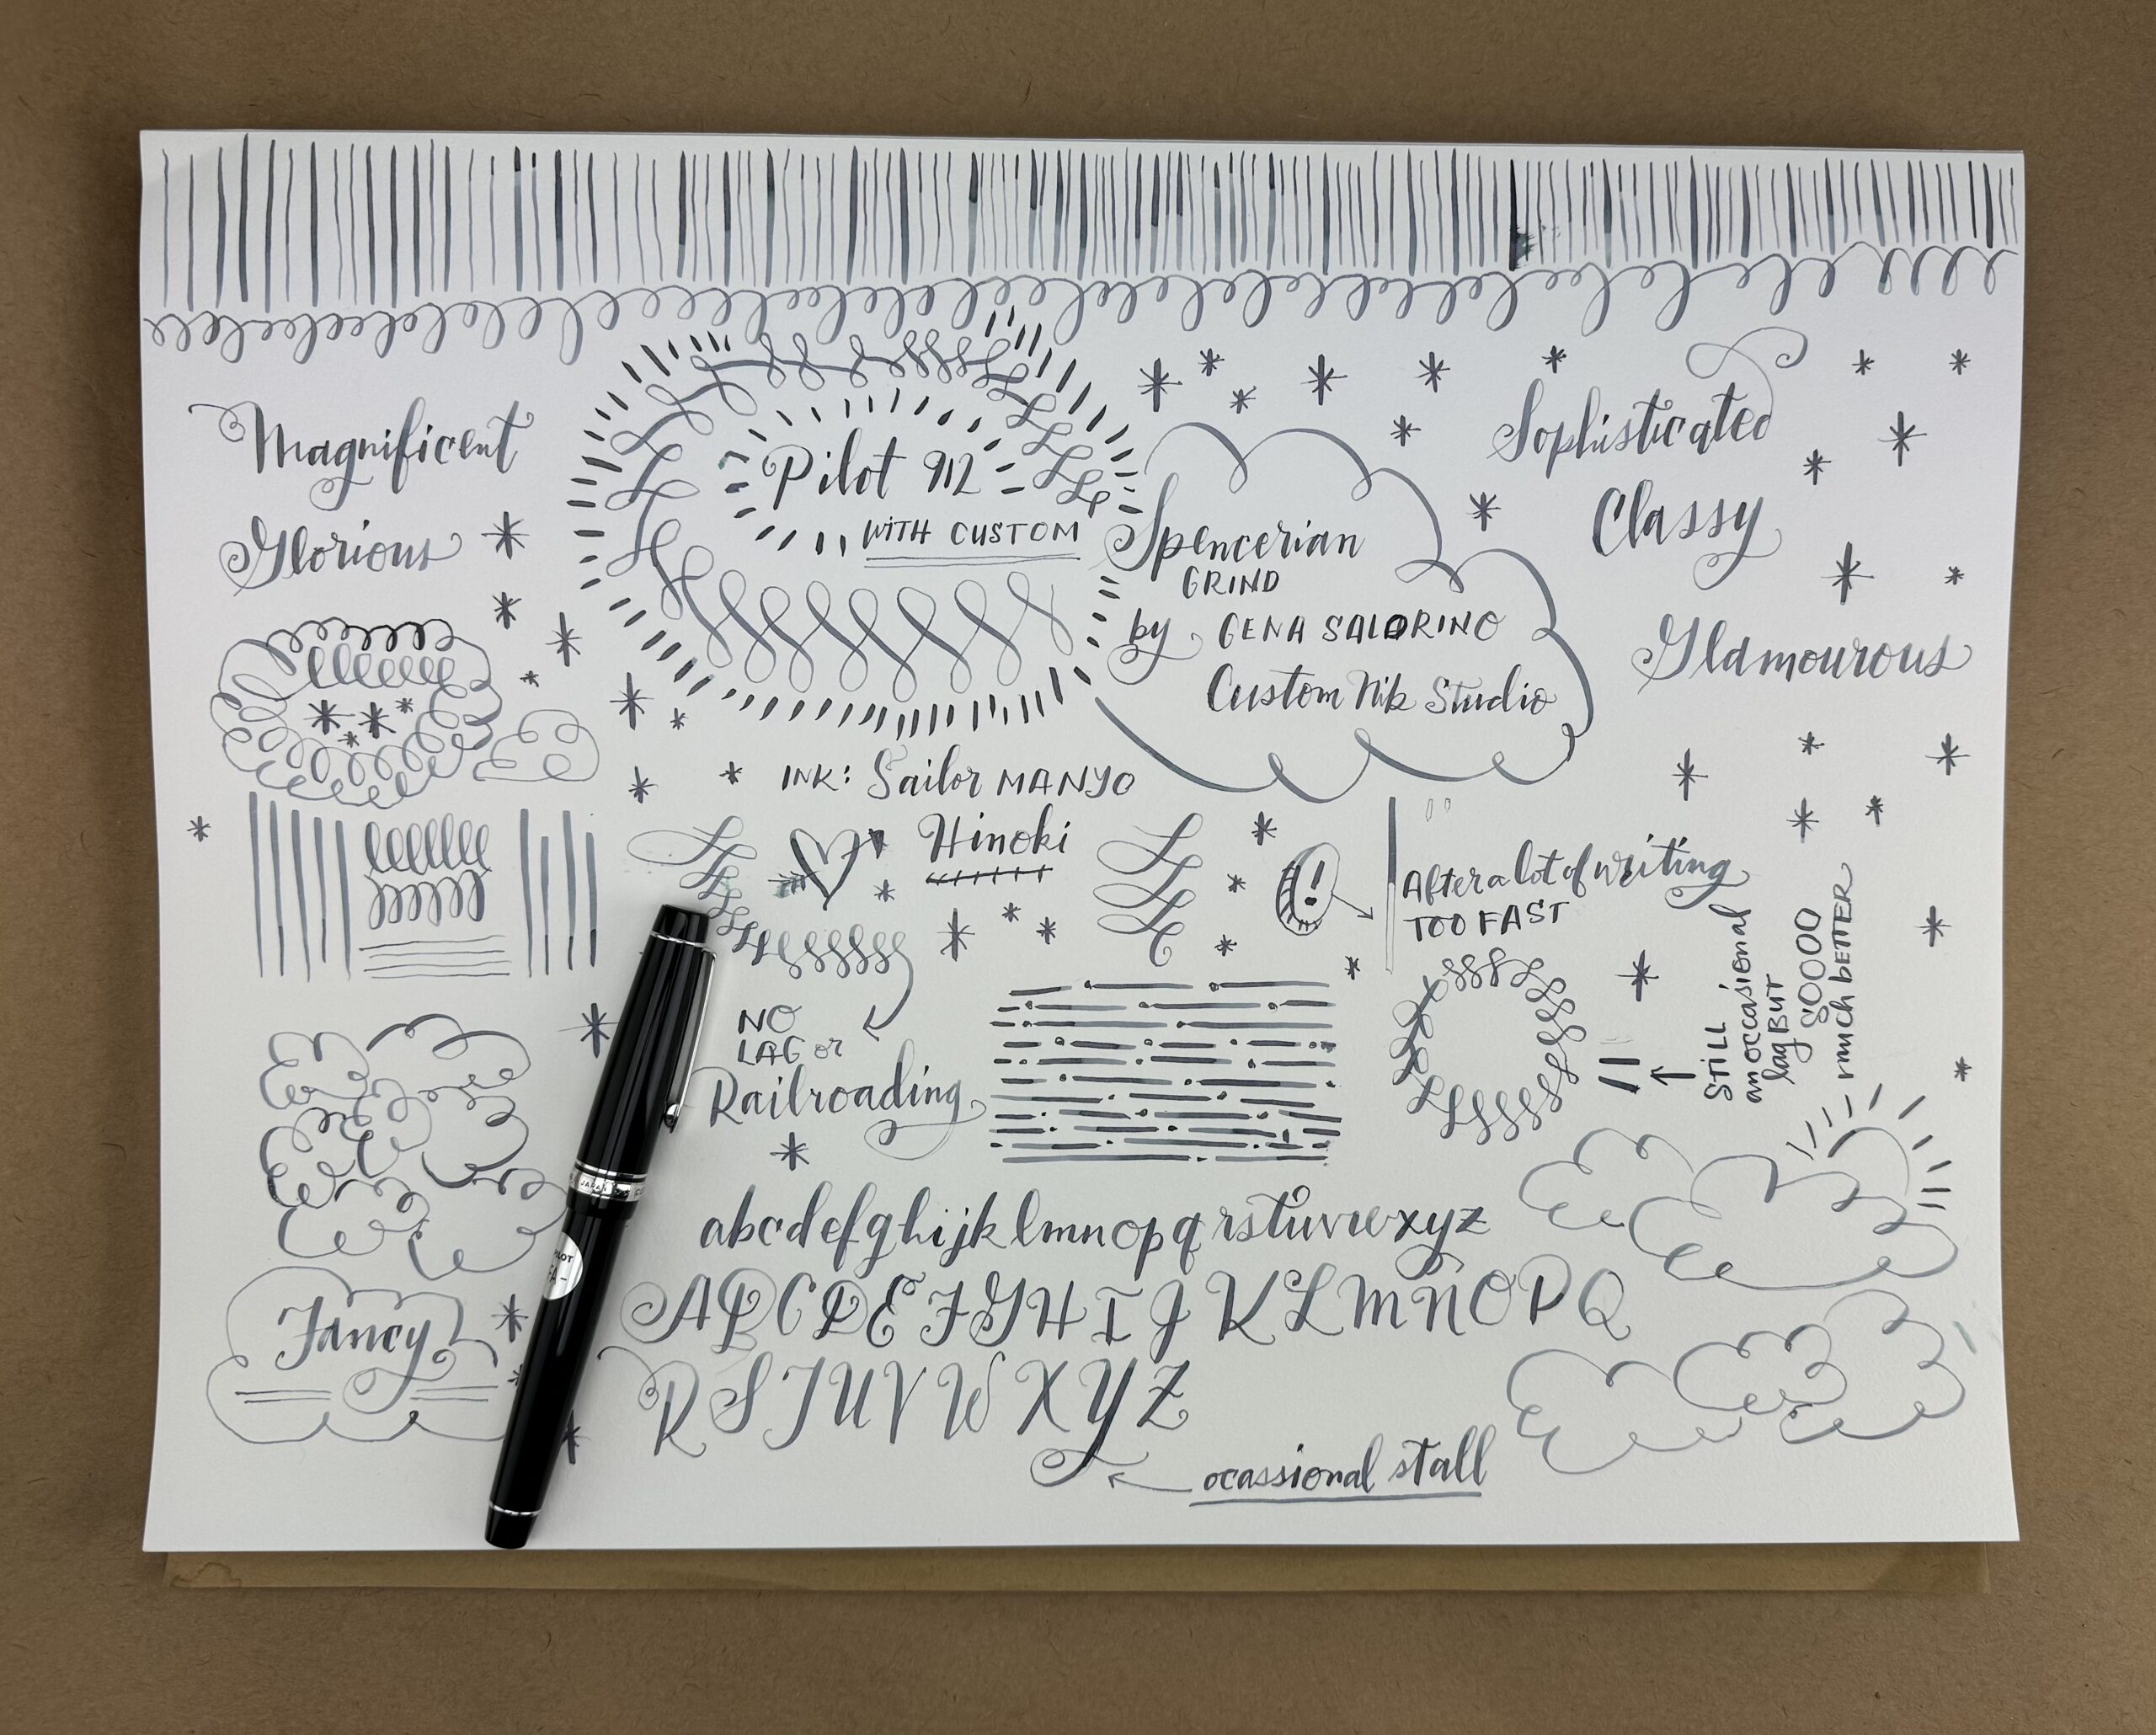 Magnificent
Glorious
Pilot 912
WITH CUSTOM
Spencerian
GRIND
by GENA SALORINO
Custom Nib Studio
Sophisticated
Classy
Glamourous
* INK: Sailor MANYO
Hinoki
!
After a lot of writing
TOO FAST
STILL
an occasional
lag BUT
SOOOO
much beTTER
NO
LAG or
Railroading
abcdefghijklmnopqrstuvwxyz
ABCDEFGHIJKLMNOPQ
RSTUVWXYZ
Fancy
ocassional stall
JAPAN
PILOT
FA-